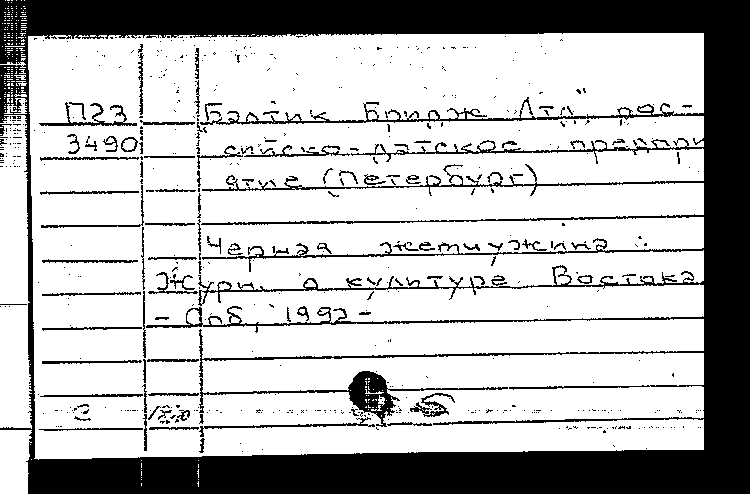 П23 "Балтик Бридж Лтд", рос-
3490 сийско-датское предпри
ятие (Петербург)
Черная жемчужина :
Журн. о культуре Востока.
- Спб, 1992 -
С